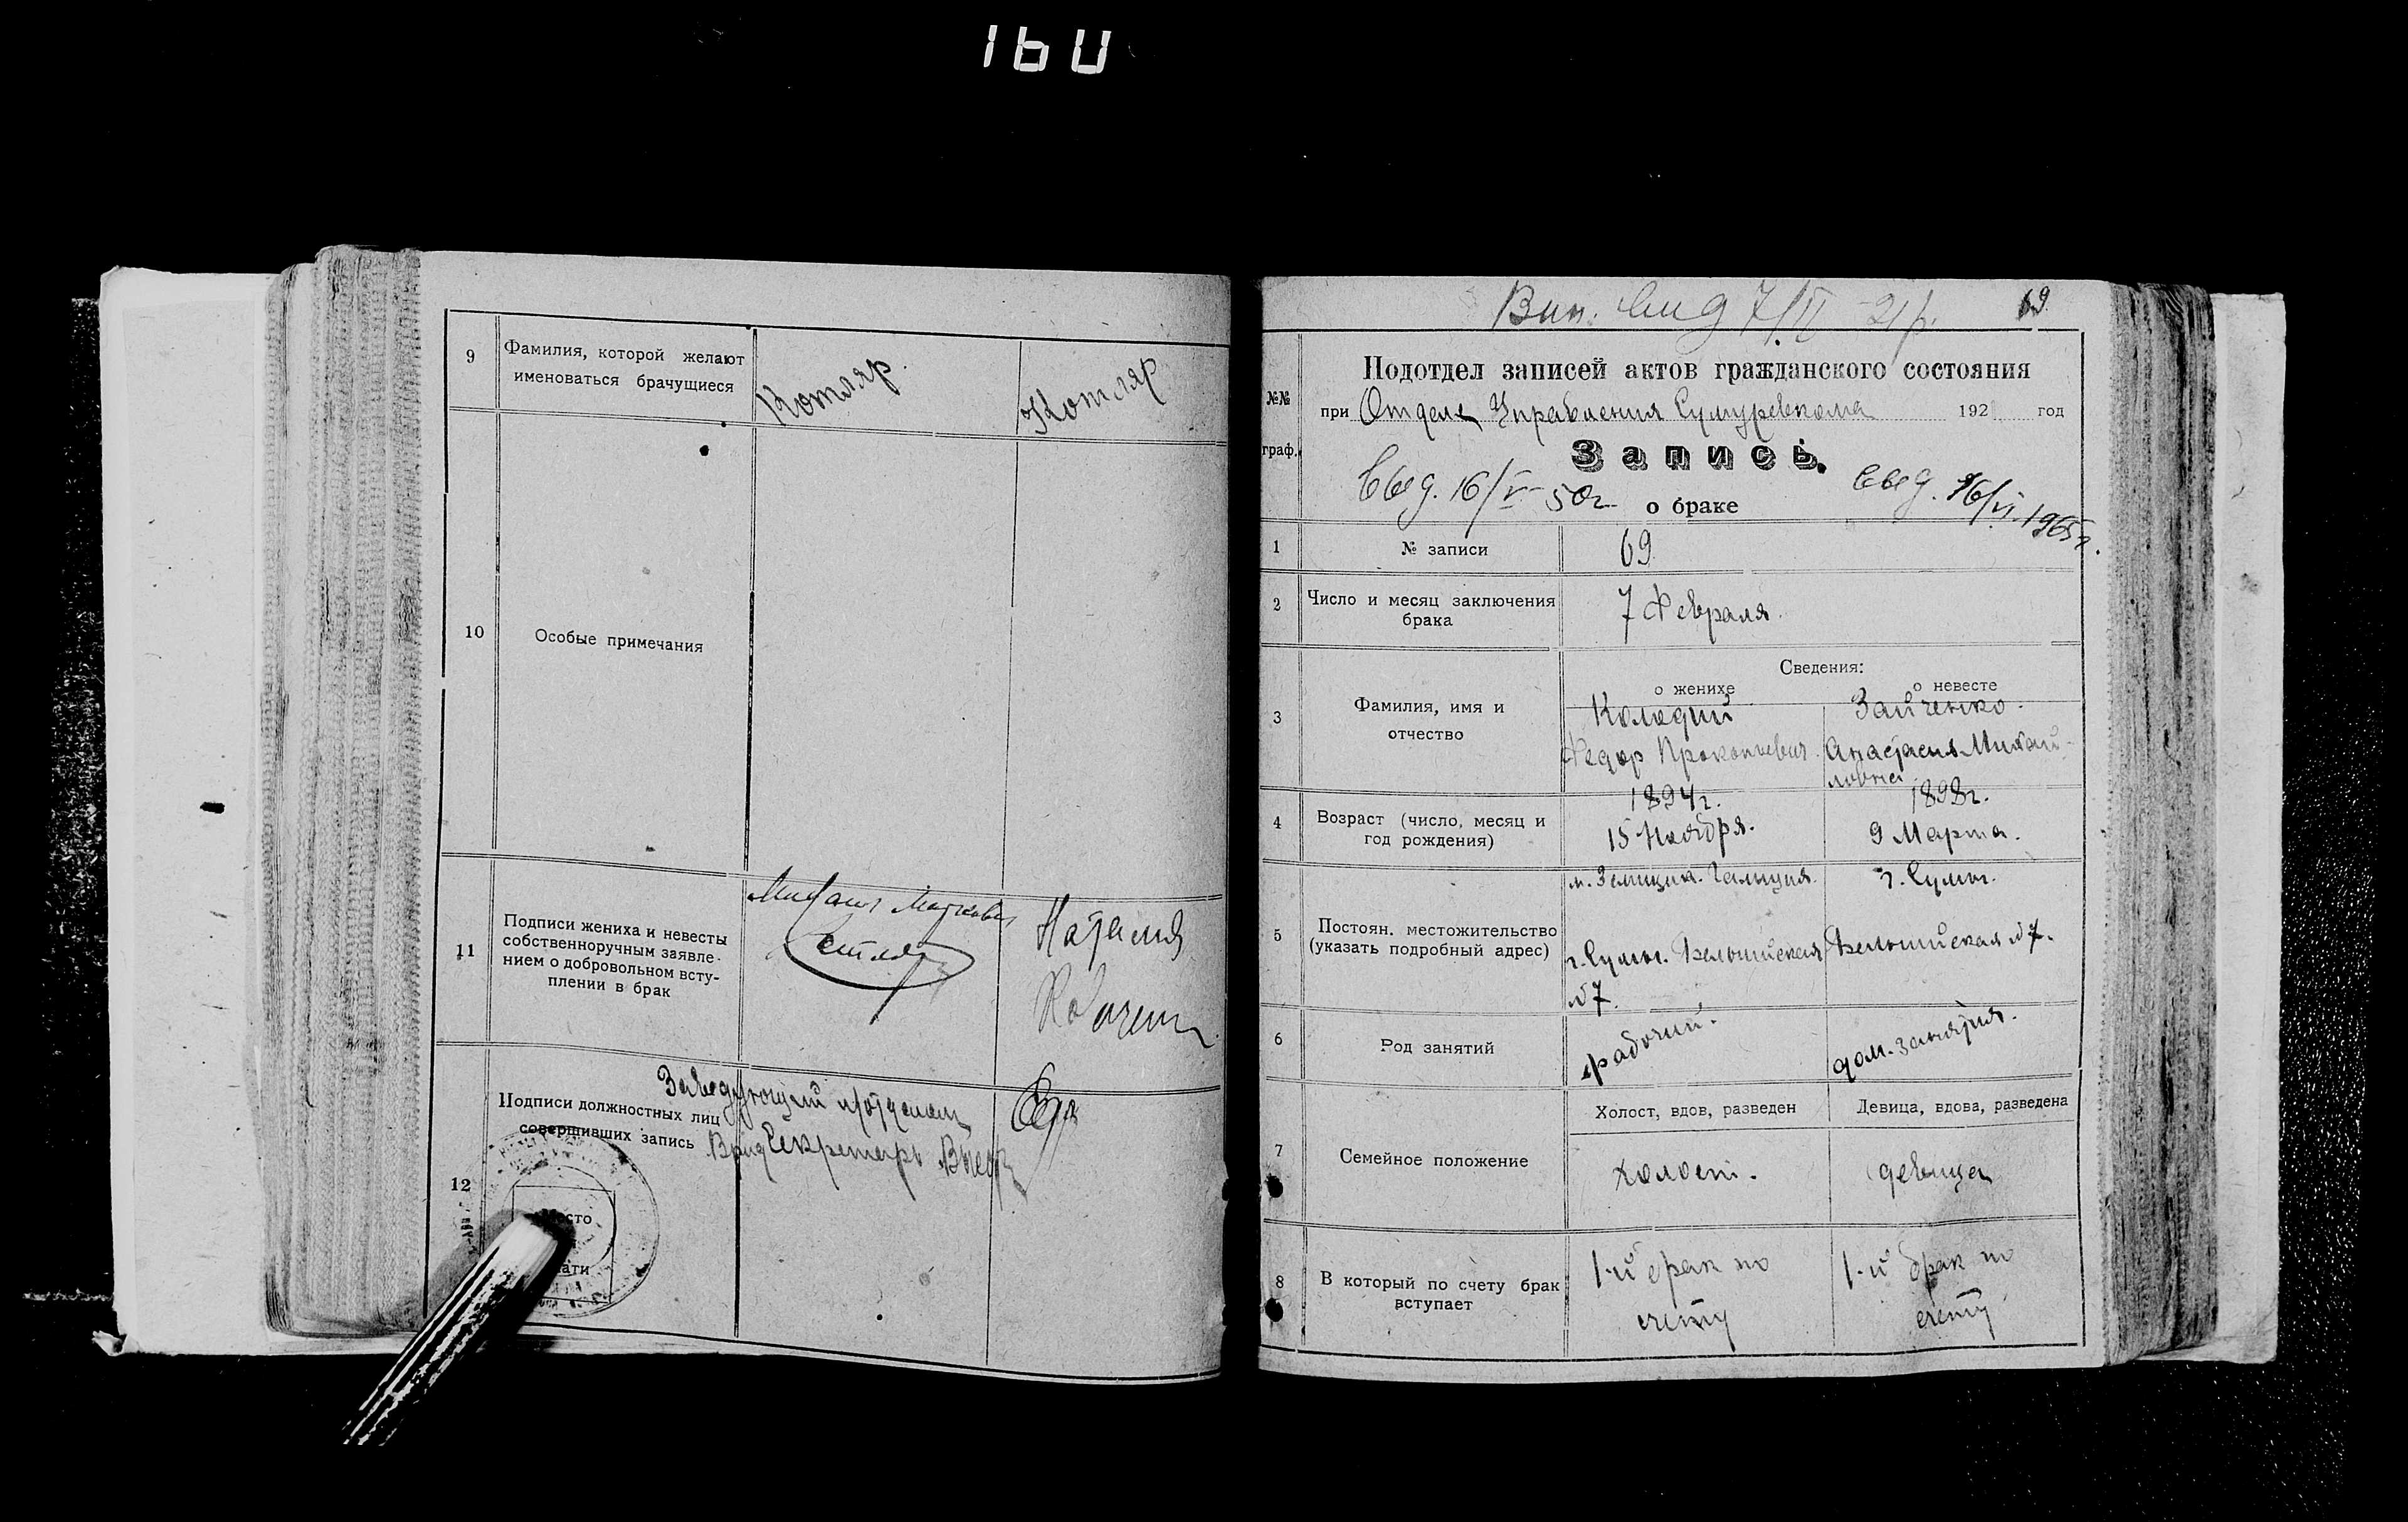 160
9
Фамилия, которой желают
именоваться брачущиеся
Котляр.
Котляр
10
Особые примечания
11
Подписи жениха и невесты
собственноручным заявле-
нием о добровольном всту-
плении в брак
Наталия
12
Подписи должностных лиц
совершивших запись
Заведующий п/отделом
Врид Секретарь
69
Подотдел записей актов гражданского состояния
№№
граф.
при Отделе Управления Сумуревкома 192 год
Запись
о браке
Свед. 16/V-50г
Свед. 16/VI-1965г.
1
№ записи
69
2
Число и месяц заключения
брака
7 Февраля.
Сведения:
о женихе
о невесте
3
Фамилия, имя и
отчество
Колодий
Федор Прокопьевич
Зайченко.
Анастасия Михай-
ловна
4
Возраст (число, месяц и
год рождения)
1894г.
15 Ноября.
1898г.
9 Марта.
5
Постоян. местожительство
(указать подробный адрес)
Галиция.
г. Сумы.
№7.
г. Сумы.
№7.
6
Род занятий
рабочий.
дом. занятия.
7
Семейное положение
Холост, вдов, разведен
Девица, вдова, разведена
холост.
девица
8
В который по счету брак
вступает
1-й брак по
счету
1-й брак по
счету